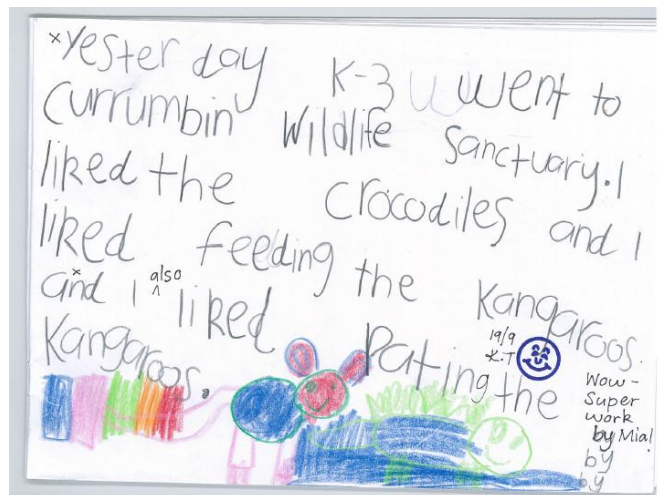 *Yesterday K-3 went to
Currumbin Wildlife Sanctuary. I
liked the crocodiles and I
liked feeding the Kangaroos.
and I also liked Pating the
Kangaroos.
19/9
K.T
Wow-
Super
work
by Mia!
by
by